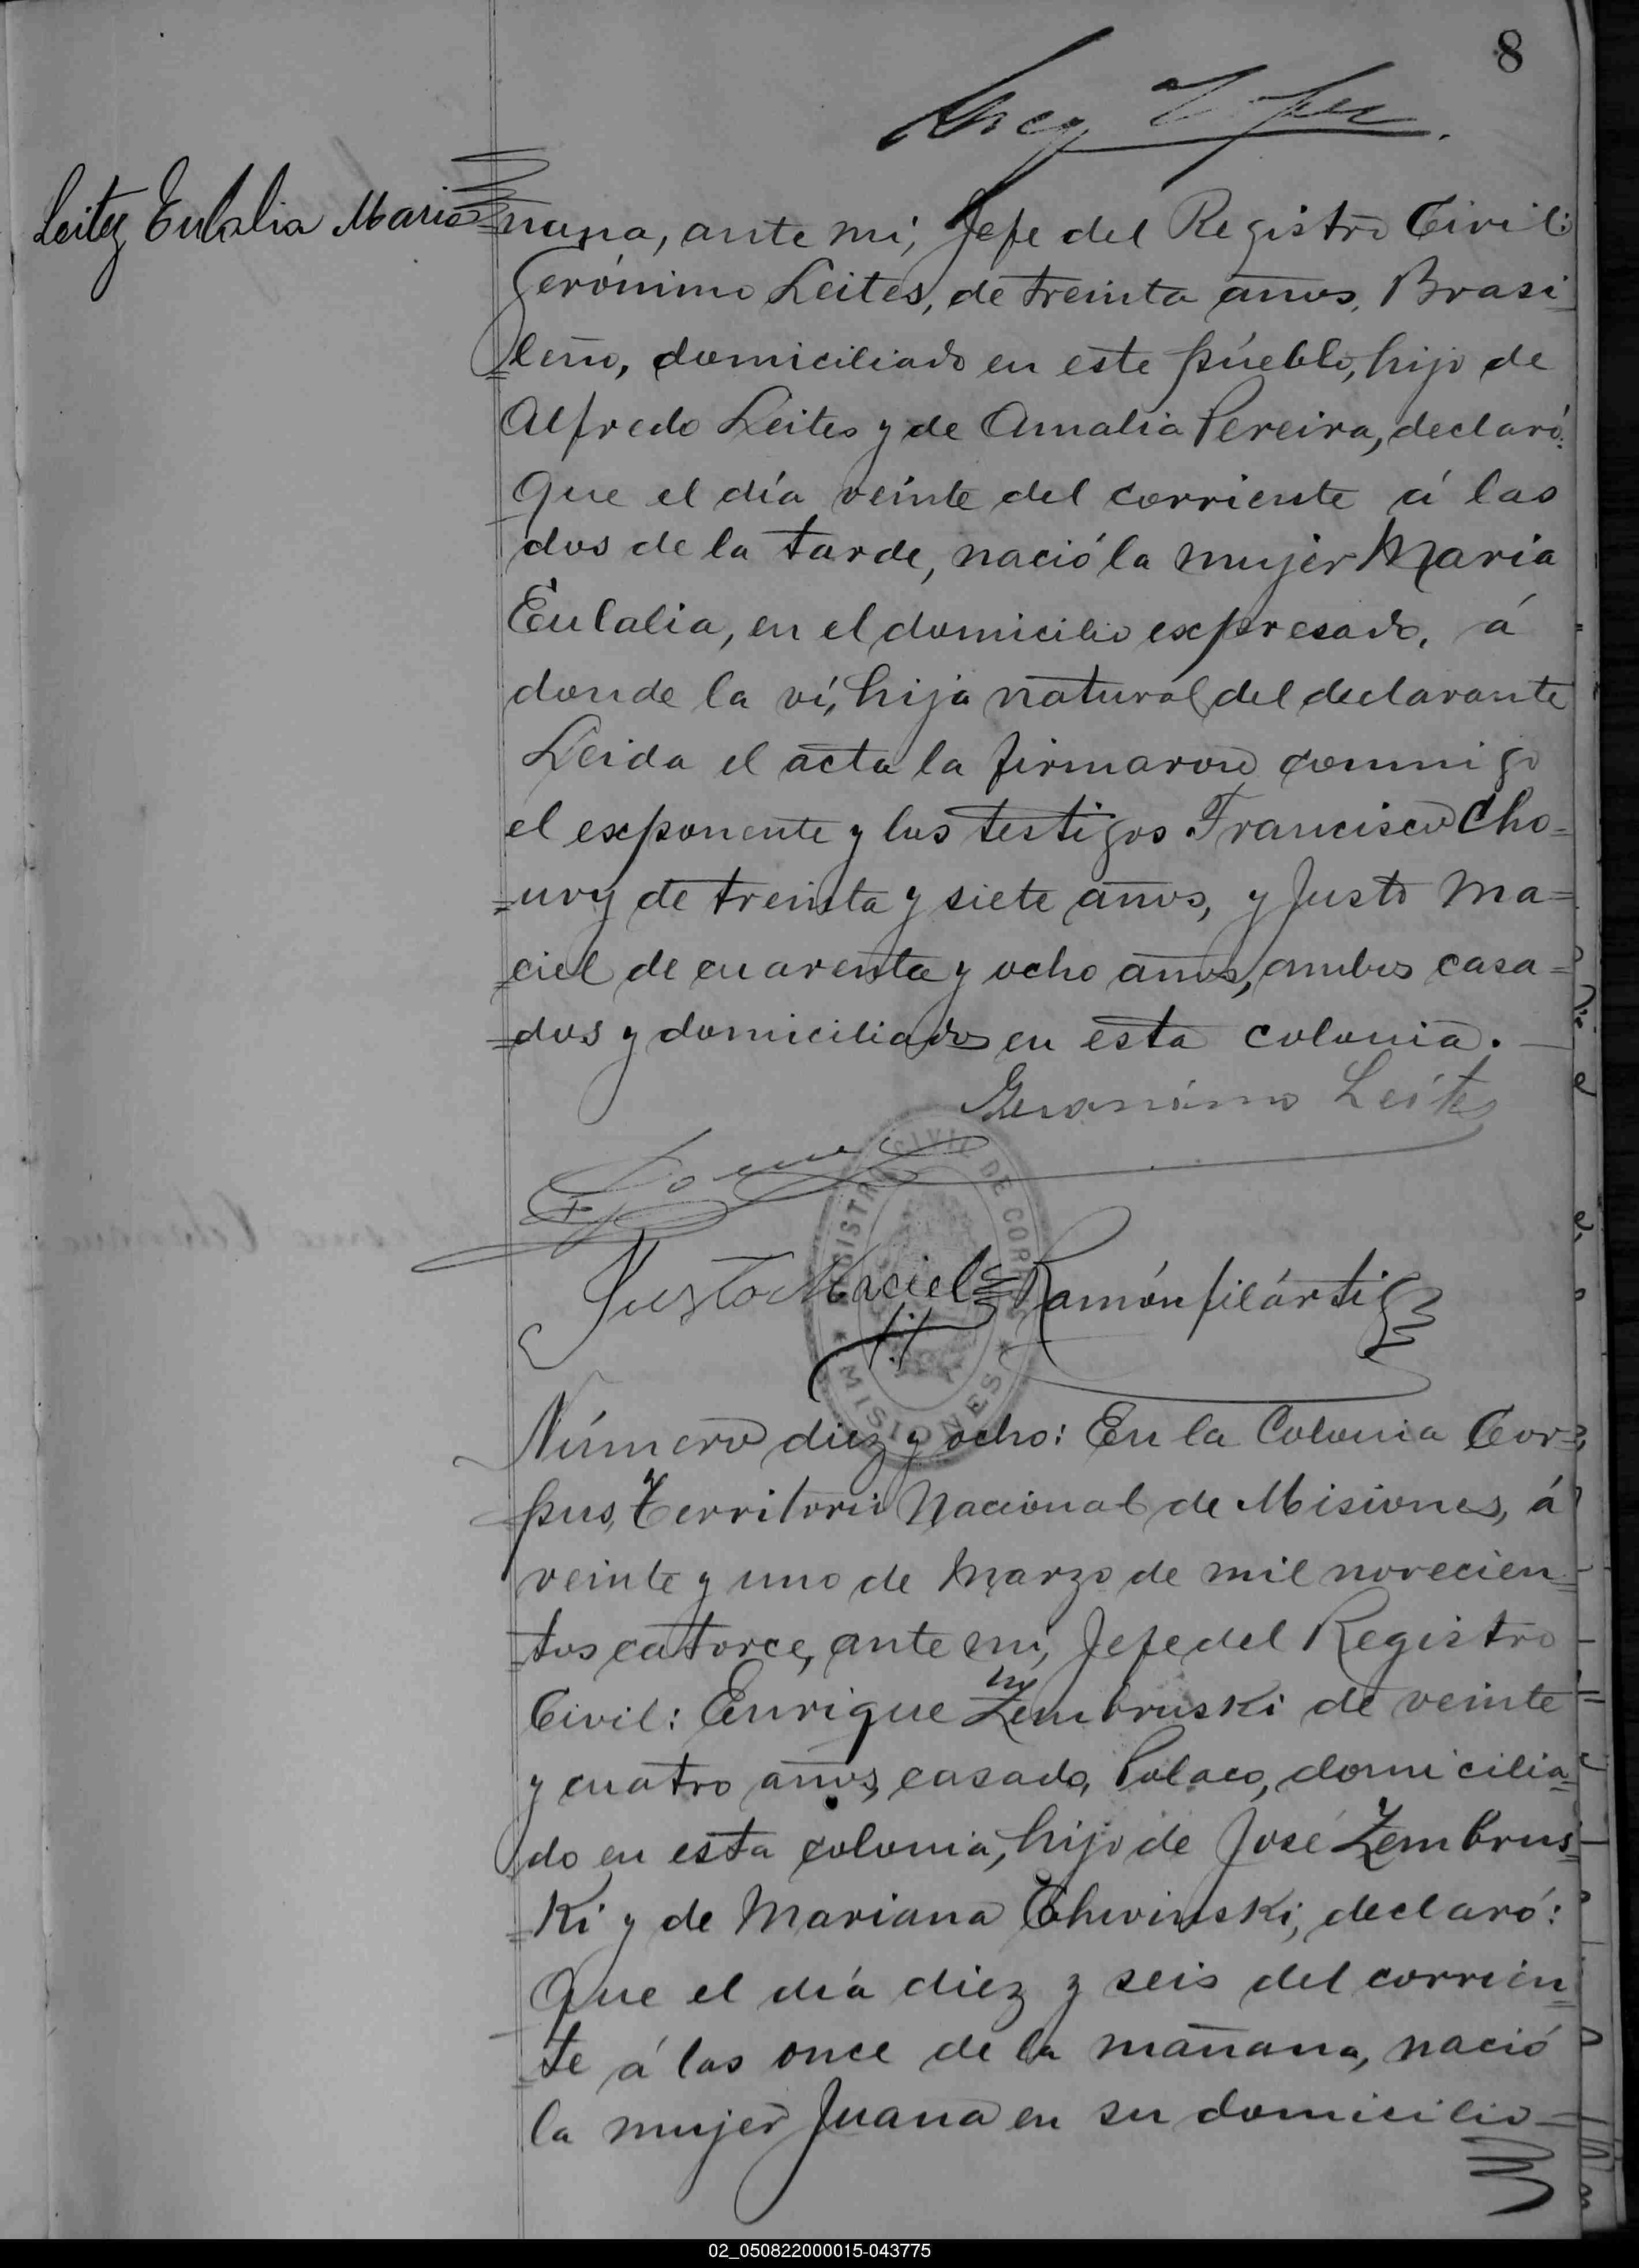 8
Leitez Eulalia Maria
=nana, ante mi, Jefe del Registro Civil:
Gerónimo Leites, de treinta años, Brasi=
=leño, domiciliado en este pueblo, hijo de
Alfredo Leites y de Amalia Pereira, declaró:
Que el día veinte del corriente á las
dos de la tarde, nació la mujer Maria
Eulalia, en el domicilio expresado, á
donde la ví, hija natural del declarante
Leida el acta la firmaron conmigo
el exponente y los testigos Francisco Cho=
=uvy de treinta y siete años, y Justo Ma=
=ciel de cuarenta y ocho años, ambos casa=
=dos y domiciliados en esta colonia.
Geronimo Leites
Justo Maciel
Ramón filártiga
REGISTRO CIVIL DE CORPUS
* MISIONES *
Número diez y ocho: En la Colonia Cor=
pus, Territorio Nacional de Misiones, á
veinte y uno de Marzo de mil novecien=
=tos catorce, ante mi, Jefe del Registro
Civil: Enrique Zembruski de veinte
y cuatro años, casado, Polaco, domicilia=
do en esta colonia, hijo de José Zembrus=
=ki y de Mariana Chwinski, declaró:
Que el día diez y seis del corrien=
te á las once de la mañana, nació
la mujer Juana en su domicilio=
02_050822000015-043775